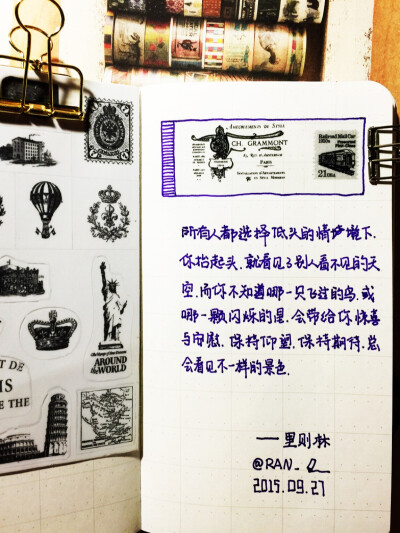 AMEUBLEMENTS DE STYLE
CH. GRAMMONT
PARIS
Railroad Mail Car
1920s
Presorted
21 USA
所有人都选择低头的情境下.
你抬起头.就看见了别人看不见的天
空.而你不知道哪一只飞过的鸟.或
哪一颗闪烁的星.会带给你惊喜
与安慰.保持仰望.保持期待.总
会看见不一样的景色.
——里则林
@RAN_
2015.09.27
AROUND
THE WORLD
T DE
IS
E THE